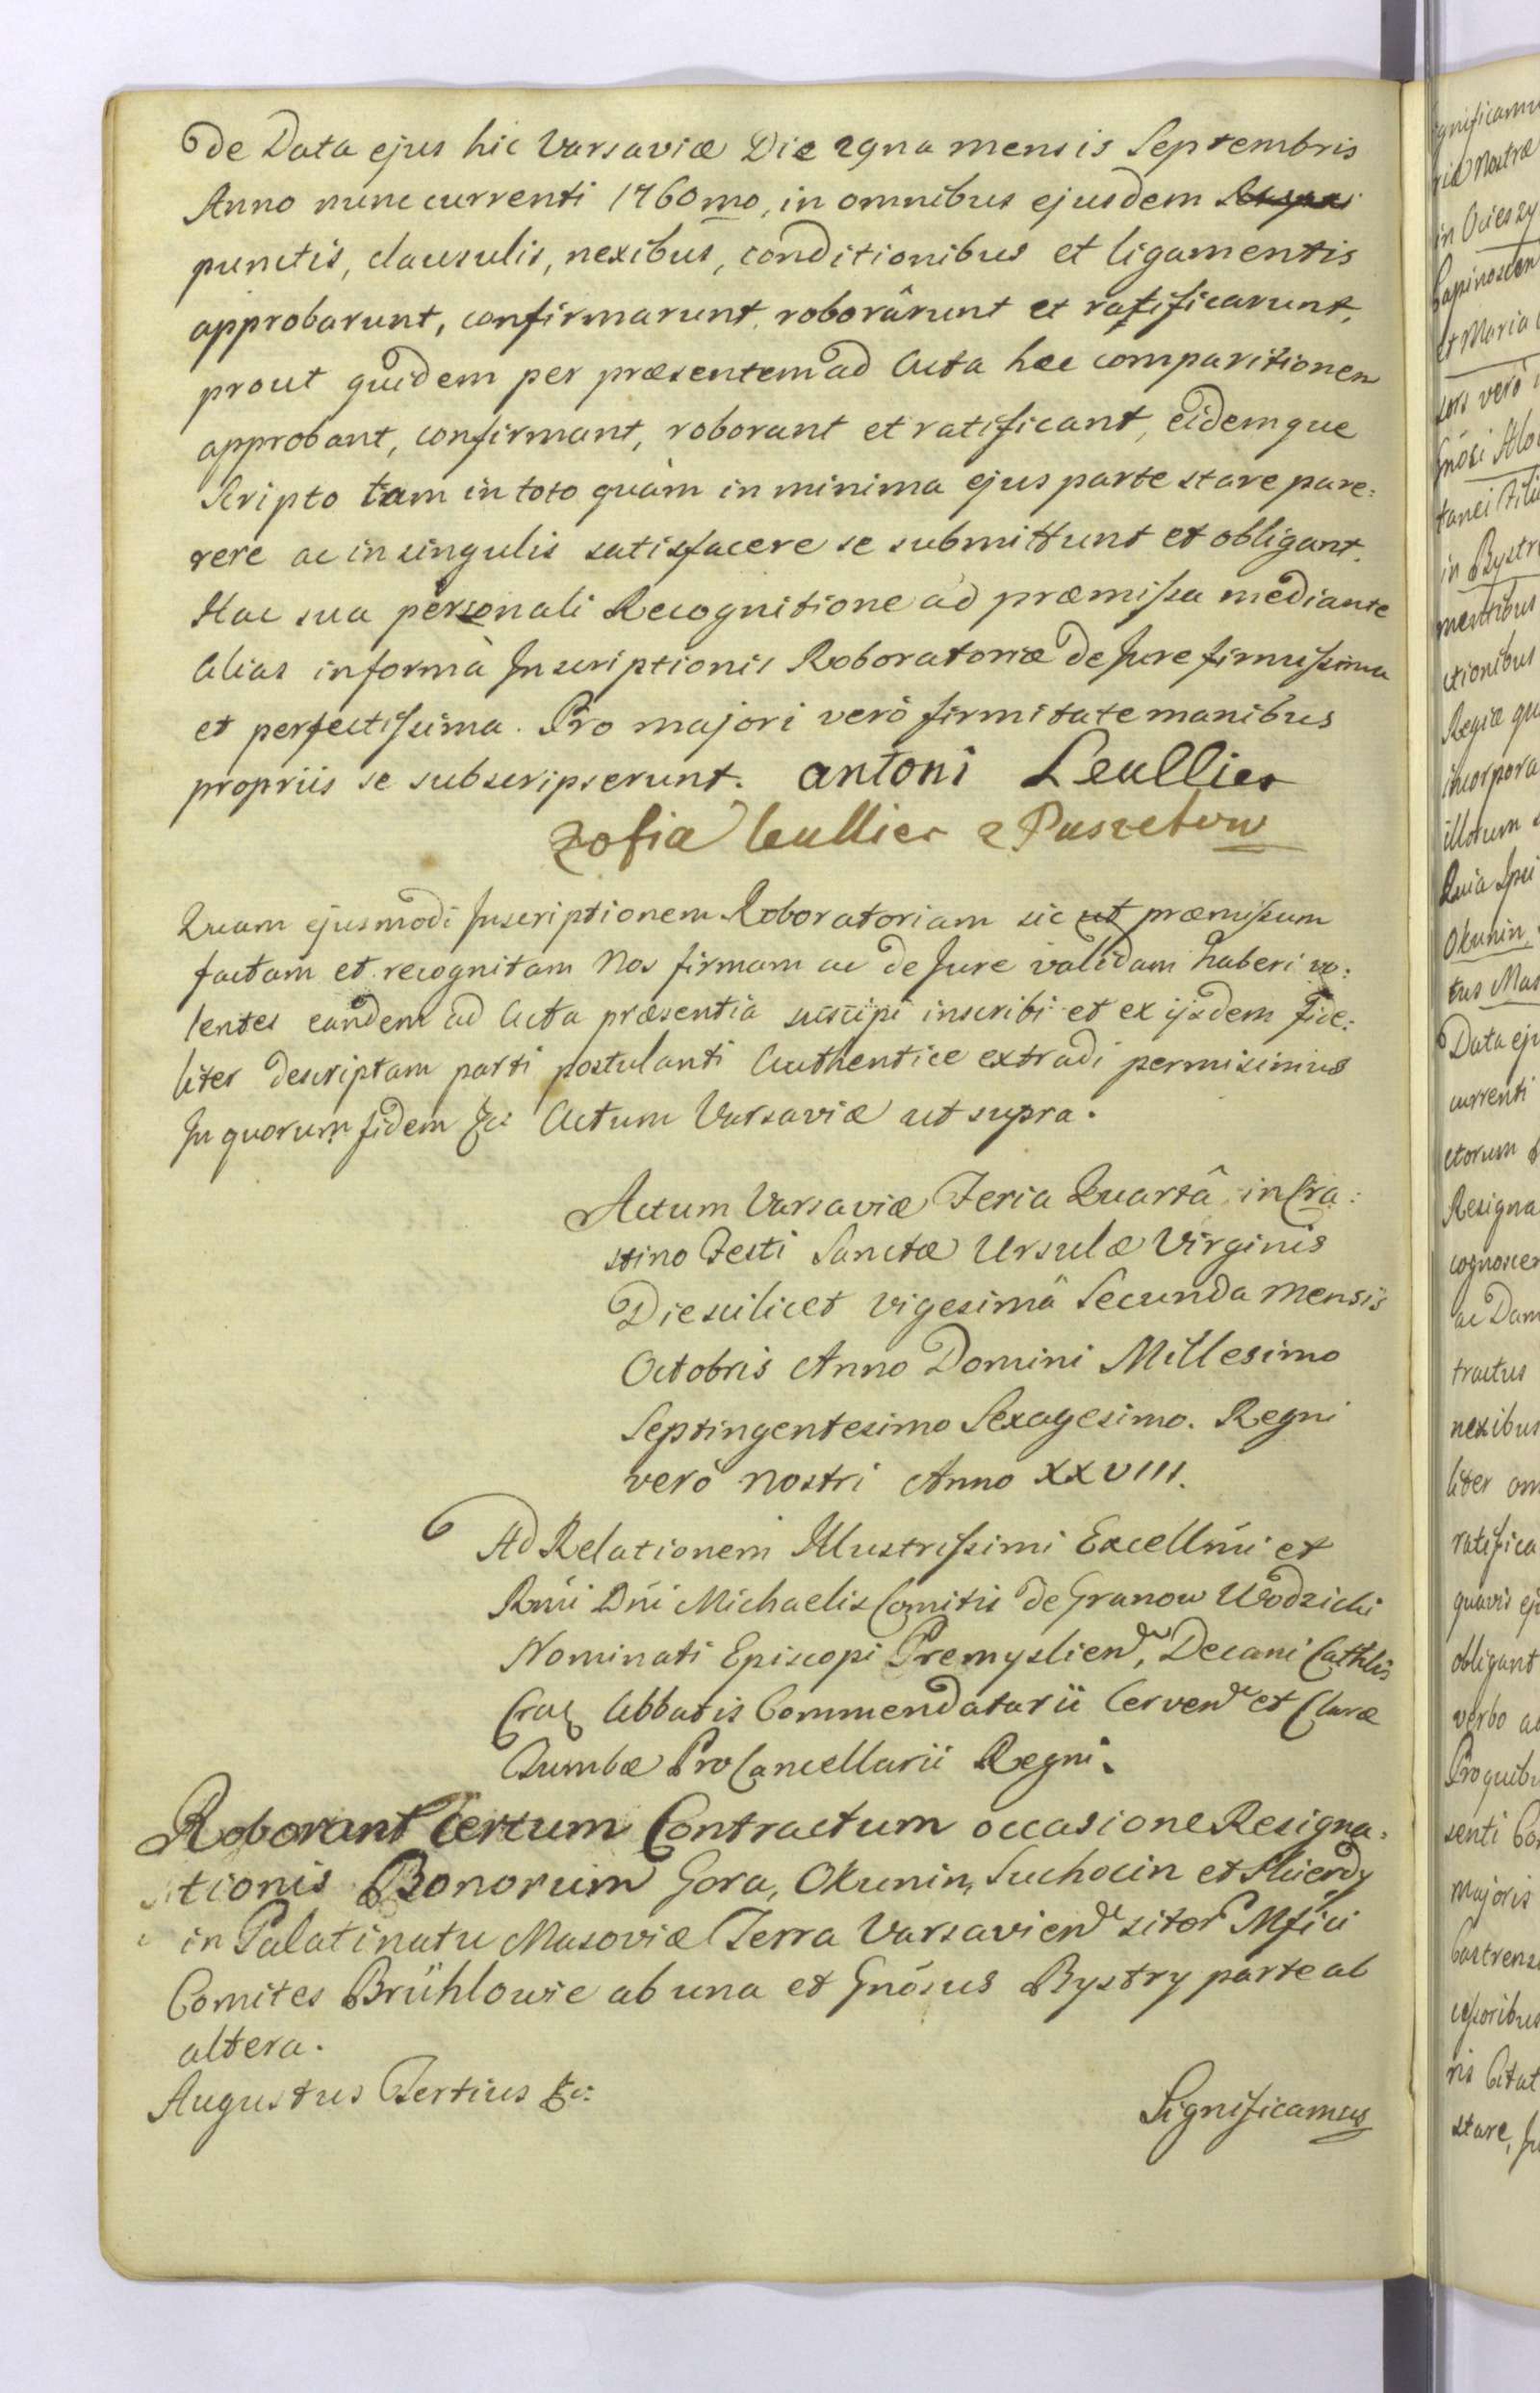 De Data ejus hic Varsaviæ Die 29na mensis Septembris
Anno nunc currenti 1760mo, in omnibus ejusdem
punctis, clausulis, nexibus, conditionibus et ligamentis
approbarunt, confirmarunt, roborârunt et ratificarunt,
prout quidem per præsentem ad Acta hæc comparitionem
approbant, confirmant, roborant et ratificant, eidemque
Scripto tam in toto quàm in minima ejus parte stare pare:
rere ac in singulis satisfacere se submittunt et obligant.
Hac sua personali Recognitione ad præmissa mediante
Alias in formà Inscriptionis Roboratoriæ de Jure firmissima
et perfectissima. Pro majori verò firmitate manibus
propriis se subscripserunt. antoni Leullier
Zofia leullier z Puszetow
Quam ejusmodi Inscriptionem Roboratoriam sic ut præmissum
factam et recognitam Nos firmam ac de Jure validam haberi vo:
lentes eandem ad Acta præsentia suscipi inscribi et ex ijsdem fide:
liter descriptam parti postulanti Authentice extradi permisimus
In quorum fidem &c: Actum Varsaviæ ut supra.
Actum Varsaviæ Feria Quartâ in Cra:
stino Festi Sanctæ Ursulæ Virginis
Die scilicet vigesimâ Secunda Mensis
Octobris Anno Domini Millesimo
Septingentesimo Sexagesimo. Regni
verò nostri Anno XXVIII.
Ad Relationem Illustrissimi Excellmi et
Rmi Dni Michaelis Comitis de Granow Wodzicki
Nominati Episcopi Premyslien, Decani Cathlis
Crac Abbatis Commendatarii Cerven et Claræ
Tumbæ ProCancellarii Regni.
Roborant Certum Contractum occasione Resigna:
tionis Bonorum Gora, Okunin, Suchocin et Skierdy
in Palatinatu Masoviæ Terra Varsavien sitor Mfici
Comites Brühlowie ab una et Gnosus Bystry parte ab
altera.
Augustus Tertius &c:
Significamus